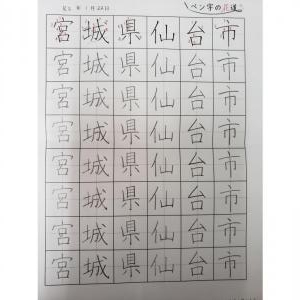 ペン字の花道
宮城県仙台市
宮城県仙台市
宮城県仙台市
宮城県仙台市
宮城県仙台市
宮城県仙台市
宮城県仙台市
宮城県仙台市